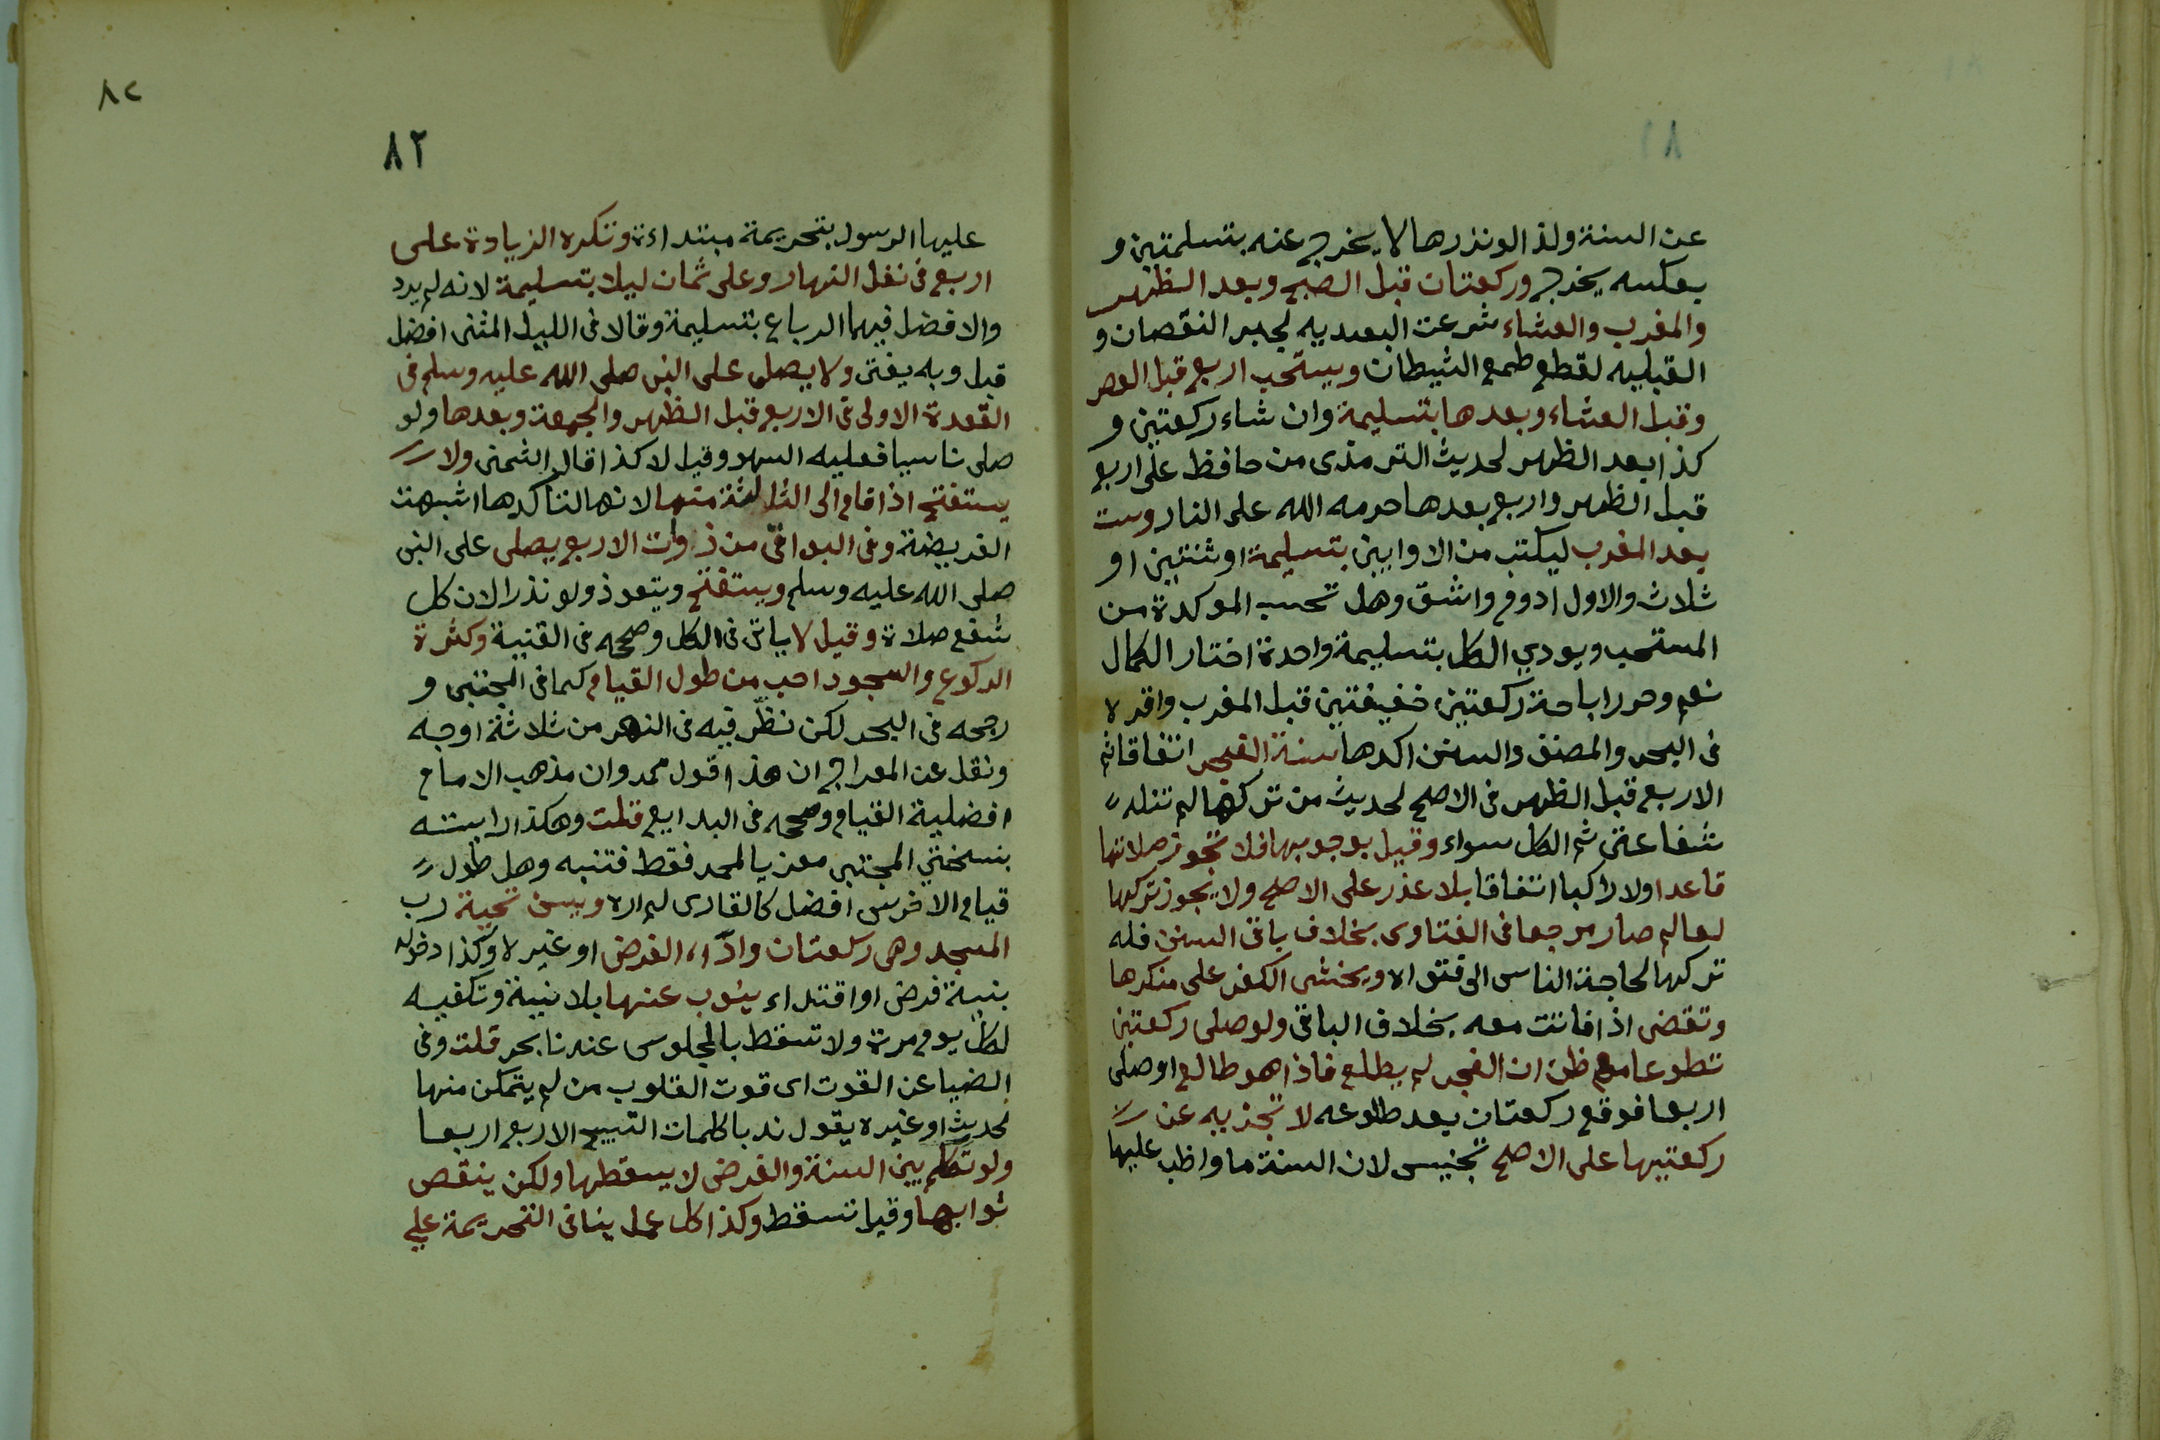 ٨١
عن السنة ولذا لو نذرها لا يخرج عنه بتسلمتين و
بعكسه يخرج وركعتان قبل الصبح وبعد الظهر
والمغرب والعشاء شرعت البعديه لجبر النقصان و
القبليه لقطع طمع الشيطان ويستحب اربع قبل العصر
وقبل العشاء وبعدها بتسليمة وان شاء ركعتين و
كذا بعد الظهر لحديث الترمذى من حافظ على اربع
قبل الظهر واربع بعدها حرمه الله على النار وست
بعد المغرب ليكتب من الاوابين بتسليمة او ثنتين او
ثلاث والاول ادوم واشق وهل تحسب الموكدة من
المستحب ويودي الكل بتسليمة واحدة اختار الكمال
نعم وحرر اباحة ركعتين خفيفتين قبل المغرب واقره
فى البحر والمصنف والسنن اكدها سنة الفجر اتفاقا ثم
الاربع قبل الظهر فى الاصح لحديث من تركها لم تنله
شفاعتى ثم الكل سواء وقيل بوجوبها فلا تجوز صلاتها
قاعدا ولا راكبا اتفاقا بلا عذر على الاصح ولا يجوز تركها
لعالم صار مرجعا فى الفتاوى بخلاف باقى السنن فله
تركها لحاجة الناس الى فتواه ويخشى الكفر على منكرها
وتقضى اذا فاتت معه بخلاف الباقى ولو صلى ركعتين
تطوعا مع ظن ان الفجر لم يطلع فاذا هو طالع او صلى
اربعا فوقع ركعتان بعد طلوعه لا تجزيه عن
ركعتيها على الاصح تجنيس لان السنة ما واظب عليها
٨٢
٨٢
عليها الرسول بتحريمة مبتداءة وتكره الزيادة على
اربع فى نفل النهار وعلى ثمان ليلا بتسليمة لانه لم يرد
والافضل فيهما الرباع بتسليمة وقالا فى الليل المثنى افضل
قيل وبه يفتى ولا يصلى على النبى صلى الله عليه وسلم فى
القعدة الاولى فى الاربع قبل الظهر والجمعة وبعدها ولو
صلى ناسيا فعليه السهو وقيل لا كذا قال الشمنى ولا
يستفتح اذا قام الى الثالثة منها لانها لتاكدها اشبهت
الفريضة وفى البواقى من ذوات الاربع يصلى على النبى
صلى الله عليه وسلم ويستفتح ويتعوذ ولو نذرا لان كل
شفع صلاة وقيل لا ياتى فى الكل وصححه فى القنية وكثرة
الركوع والسجود احب من طول القيام كما فى المجتبى و
رجحه فى البحر لكن نظر فيه فى النهر من ثلاثة اوجه
ونقل عن المعراج ان هذا قول محمد وان مذهب الامام
افضلية القيام وصححه فى البدايع قلت وهكذا رايته
بنسختى المجتبى معزيا لمحمد فقط فتنبه وهل طول
قيام الاخرس افضل كالقارى لم اره ويسن تحية رب
المسجد وهى ركعتان واداء الفرض او غيره وكذا دخوله
بنية فرض او اقتداء ينوب عنها بلا نيية وتكفيه
لكل يوم مرة ولا تسقط بالجلوس عندنا بحر قلت وفى
الضيا عن القوت اى قوت القلوب من لم يتمكن منها
لحديث او غيره يقول ندبا كلمات التسبيح الاربع اربعا
ولو تكلم بين السنة والفرض لا يسقطها ولكن ينقص
ثوابها وقيل تسقط وكذا كل عمل ينافى التحريمة على